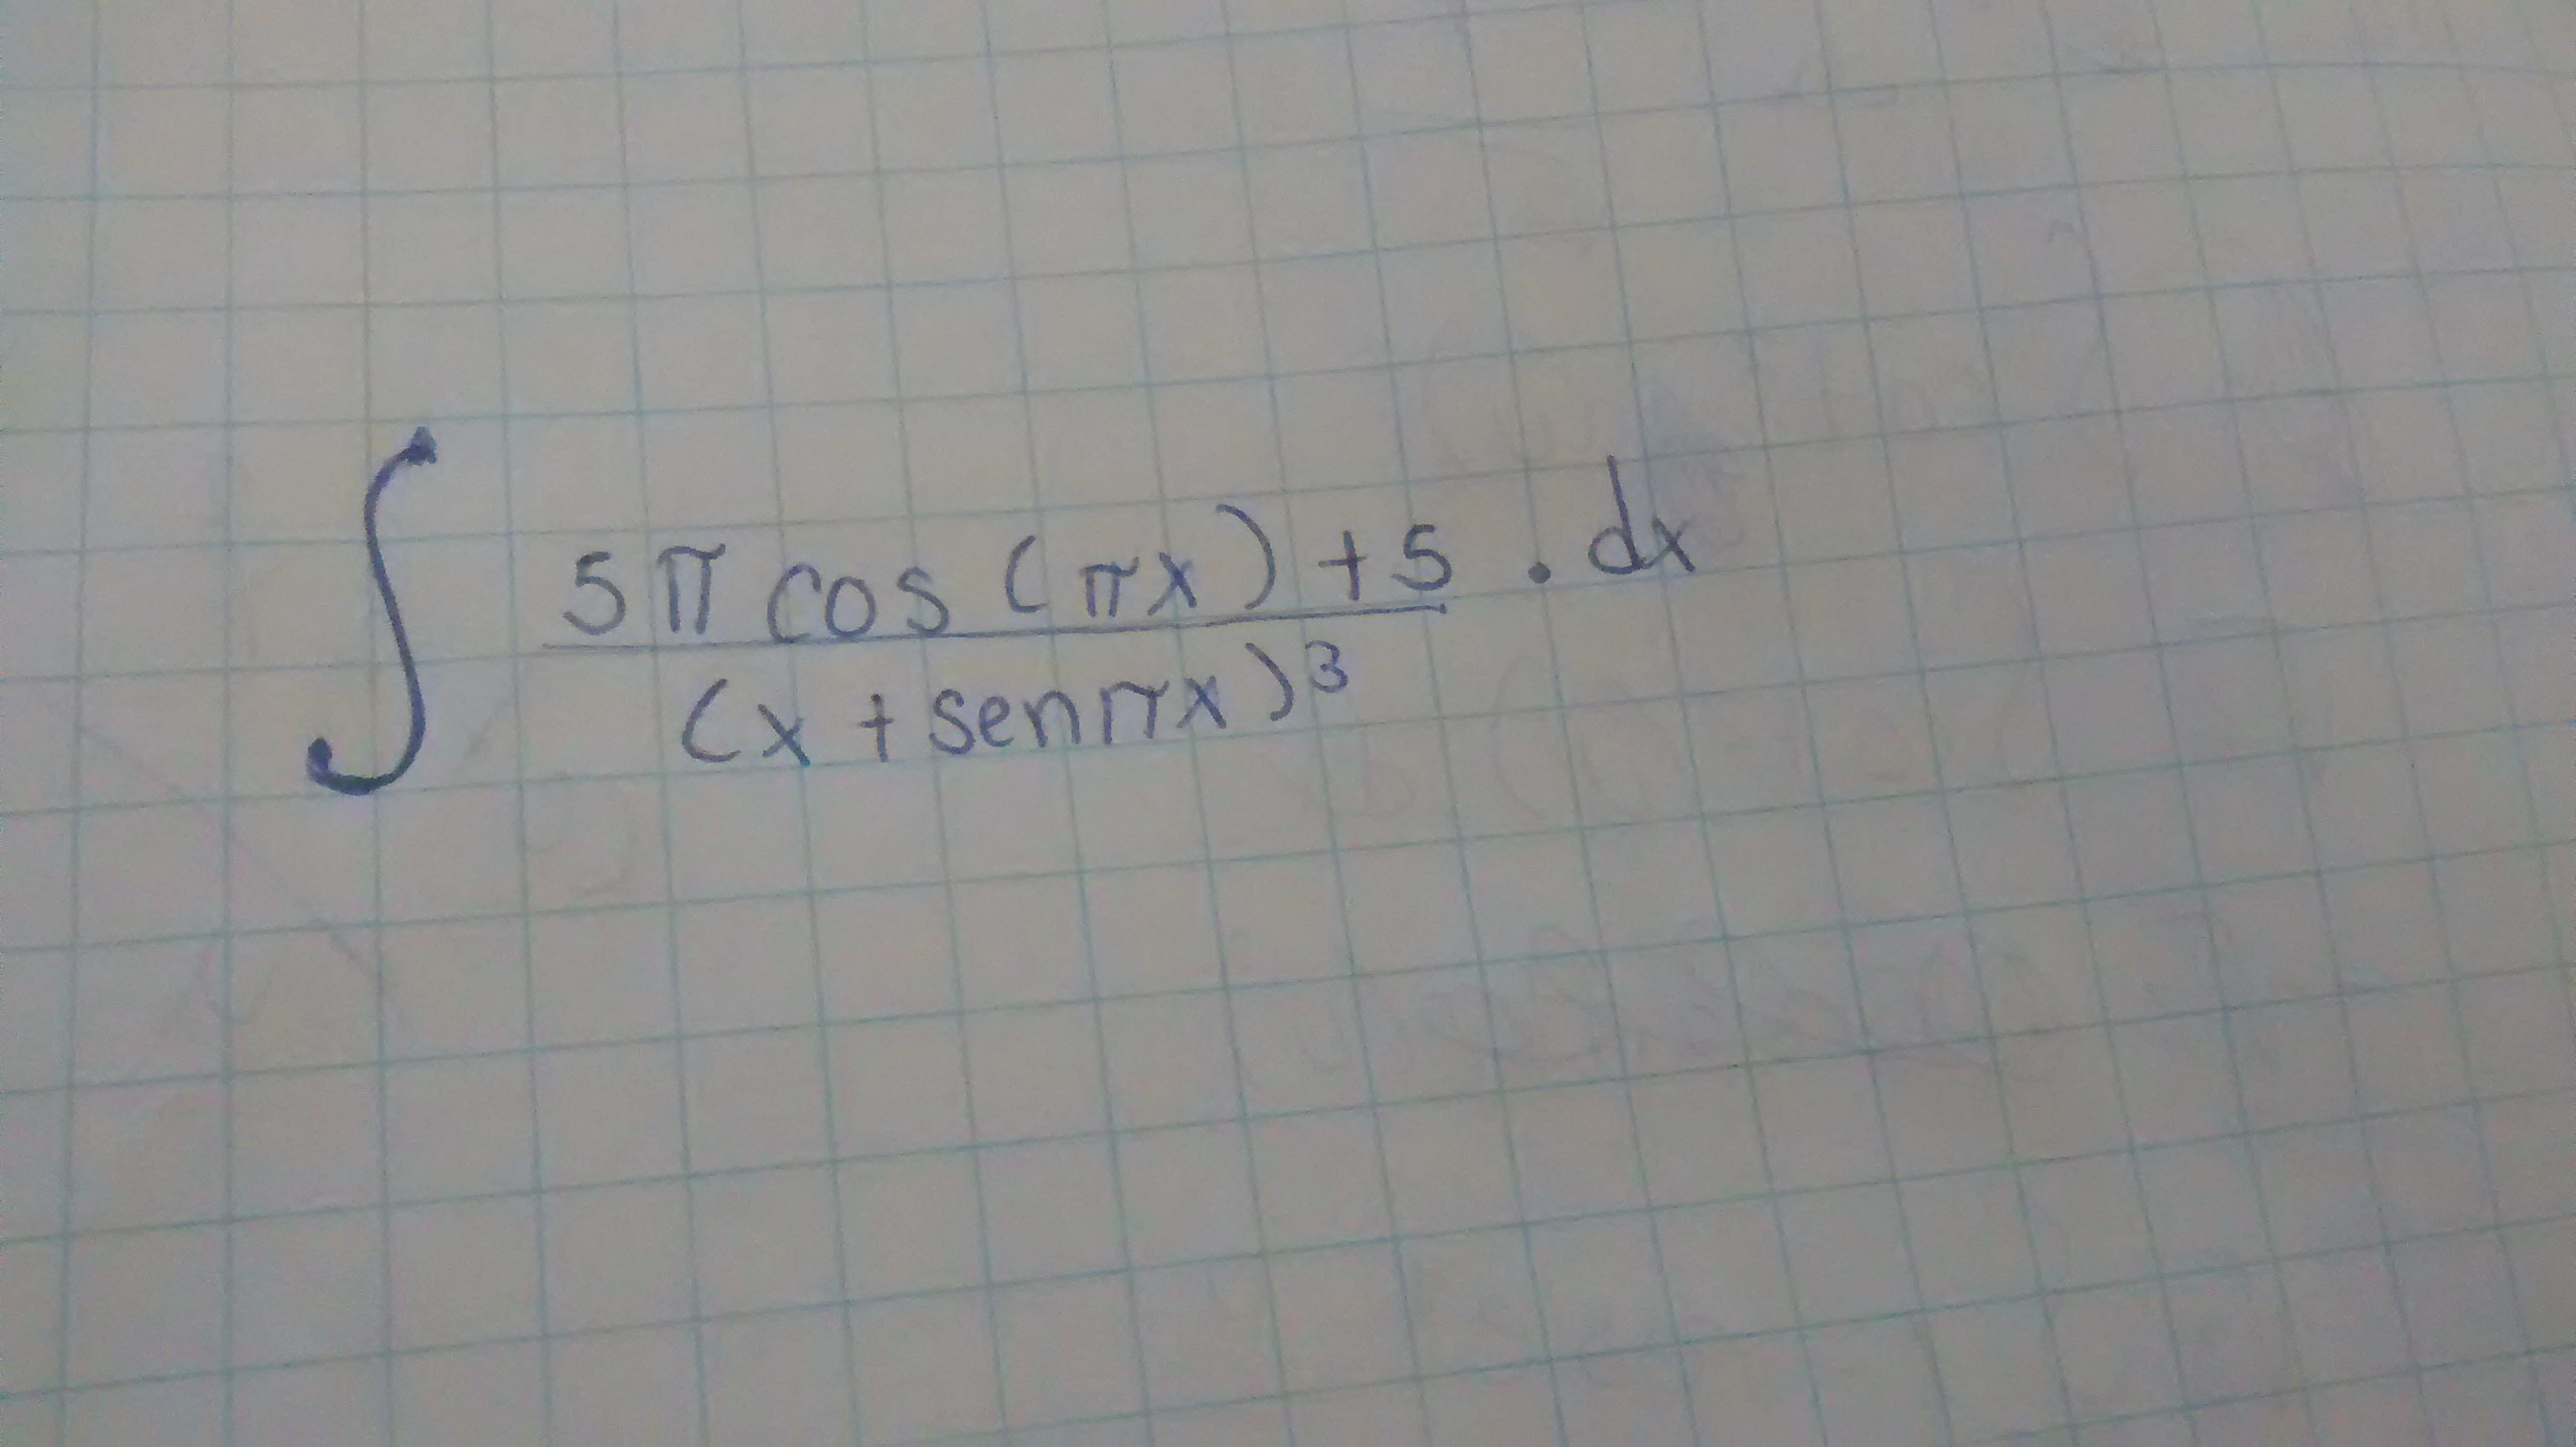 ∫ 5π cos (πx) + 5 / (x + senπx)³ · dx